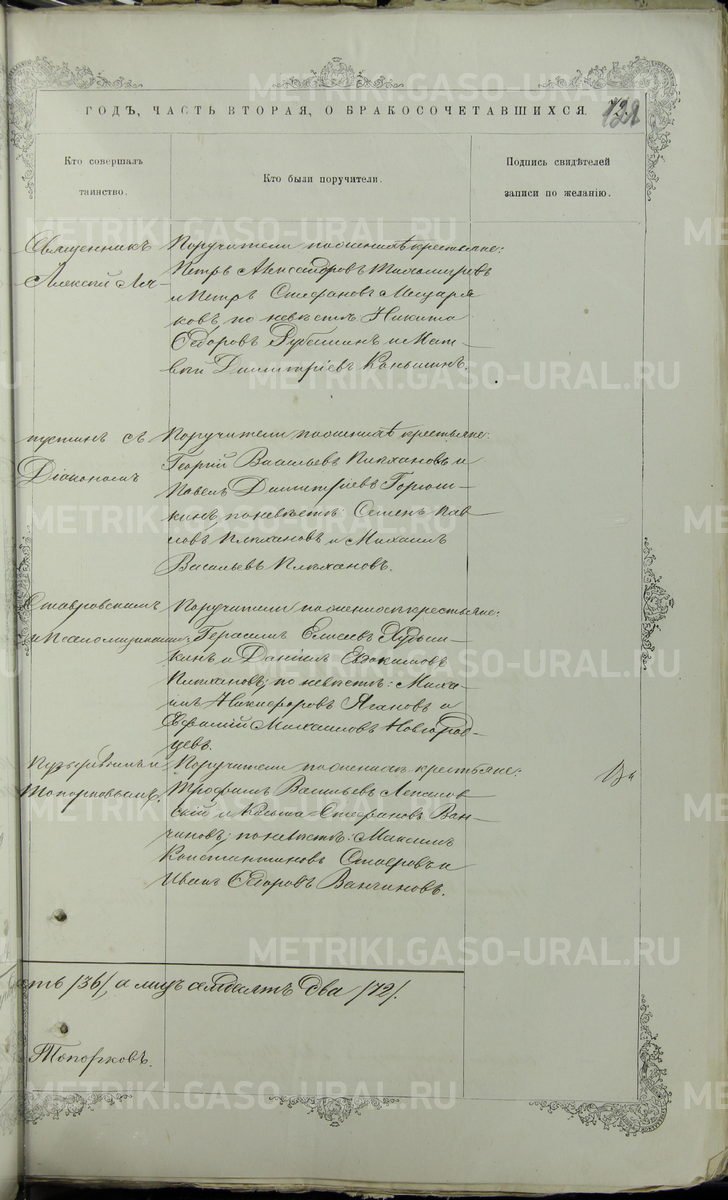 ГОДЪ, ЧАСТЬ ВТОРАЯ, О БРАКОСОЧЕТАВШИХСЯ.
Кто совершалъ
таинство.
Кто были поручители.
Подпись свидѣтелей
записи по желанію.
Священникъ
Алексій Ла-
Поручители по женихѣ крестьяне:
Петръ Александровъ Тихомировъ
и Петръ Стефановъ Мещеря-
ковъ, по невѣстѣ: Никита
Ѳедоровъ Рубашинъ и Мат-
вѣй Димитріевъ Коньшинъ.
пустинъ съ
Діакономъ
Поручители по женихѣ крестьяне:
Георгій Васильевъ Плѣхановъ и
Павелъ Димитріевъ Горюш-
кинъ, по невѣстѣ: Семенъ Пав-
ловъ Плѣхановъ и Михаилъ
Васильевъ Плѣхановъ.
Ставровскимъ
и Псаломщиками:
Поручители по женихѣ крестьяне:
Герасимъ Елисеевъ
кинъ и Даніилъ Евдокимовъ
Плѣхановъ; по невѣстѣ: Миха-
илъ Никифоровъ Ягановъ и
Ефимій Михаиловъ Новгород-
цевъ.
и
Топорковымъ.
Поручители по женихѣ крестьяне:
Трофимъ Васильевъ
и Козьма Стефановъ Ван-
чиновъ; по невѣстѣ: Максимъ
Константиновъ и
Иванъ Ѳедоровъ Ванчиновъ.
ать /36/, а лицъ семдесятъ два /72/.
Топорковъ.
METRIKI.GASO-URAL.RU